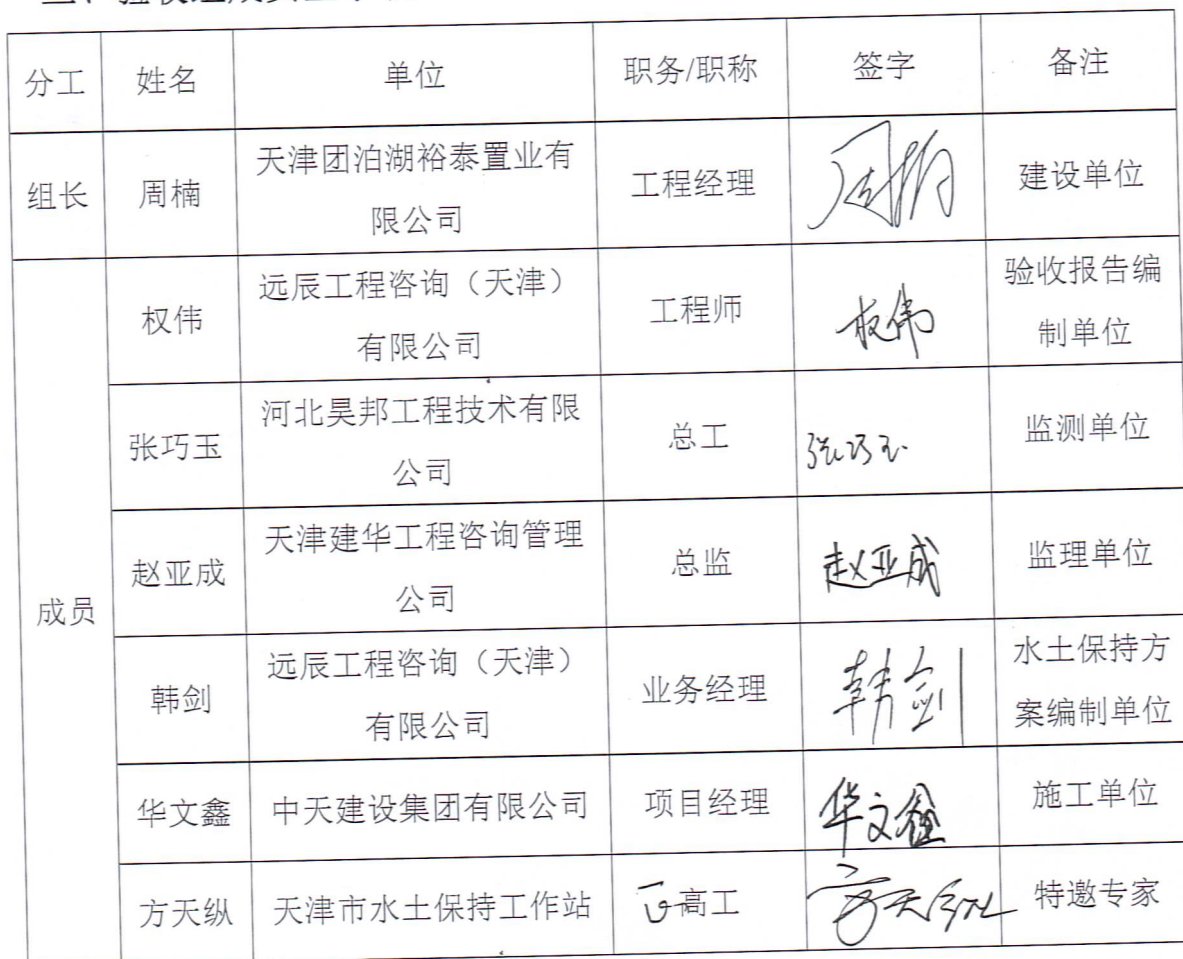 分工 姓名 单位 职务/职称 签字 备注
组长 周楠 天津团泊湖裕泰置业有 工程经理 周楠 建设单位
限公司
成员 权伟 远辰工程咨询（天津） 工程师 权伟 验收报告编
有限公司 制单位
张巧玉 河北昊邦工程技术有限 总工 张巧玉 监测单位
公司
赵亚成 天津建华工程咨询管理 总监 赵亚成 监理单位
公司
韩剑 远辰工程咨询（天津） 业务经理 韩剑 水土保持方
有限公司 案编制单位
华文鑫 中天建设集团有限公司 项目经理 华文鑫 施工单位
方天纵 天津市水土保持工作站 正高工 方天纵 特邀专家